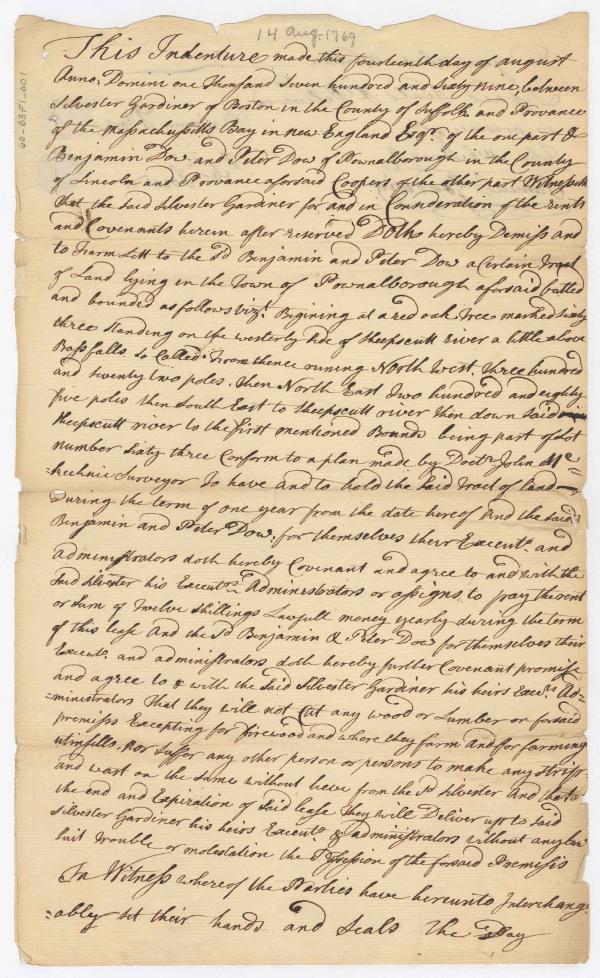 14 Aug. 1769
60-83F1-001
This Indenture made this fourteenth day of august
Anno. Domini one Thousand Seven hundred and Sixty nine, between
Silvester Gardiner of Boston in the County of Suffolk and Provance
of the Massachusetts Bay in new England Esqr. of the one part &
Benjamin Dow and Peter Dow of Pownalborough in the County
of Lincoln and Provance aforsaid Coopers of the other part Witnesseth
That the said Silvester Gardiner for and in Consideration of the rents
and Covenants herein after reserved Doth hereby Demiss and
to Farm Lett to the Sd Benjamin and Peter Dow a Certain Tract
of Land lying in the Town of Pownalborough aforsaid butted
and bounded as follows vizt. Bigining at a red oak Tree marked Sixty
three standing on the westerly side of Sheepscutt river a little above
Bass falls so Called. From thence runing North West. Three hundred
and seventy two poles. then North East Two hundred and eighty
five poles then South East to Sheepscutt river then down said
Sheepscutt river to the first mentioned Bounds being part of Lot
number Sixty three Conform to a plan made by Doctr John Mc
=kechnie Surveyor To have and to hold the said Tract of land
During the term of one year from the date hereof And the said
Benjamin and Peter Dow, for themselves their Executs. and
administrators doth hereby Covenant and agree to and with the
said Silvester his Executrs. Administrators or assigns to pay the rent
or Sum of Twelve Shillings Lawfull money yearly during the term
of this lease And the Sd Benjamin & Peter Dow for themselves their
Executs. and administrators doth hereby further Covenant promise
and agree to & with the Said Silvester Gardiner his heirs Execrs Ad=
=ministrators That they will not Cut any wood or Lumber on forsaid
premiss Excepting for firewood and where they farm and for farming
utinsills. Nor Suffer any other person or persons to make any Stript
and wast on the Same without leeve from the Sd Silvester and that at
the end and Expiration of Said lease they will Deliver up to Said
Silvester Gardiner his heirs Executs. & administrators without any law
Suit Trouble or molestation the Possession of the forsaid Premisis
In Witness whereof the Parties have hereunto Interchang=
=ably Set their hands and Seals the Day